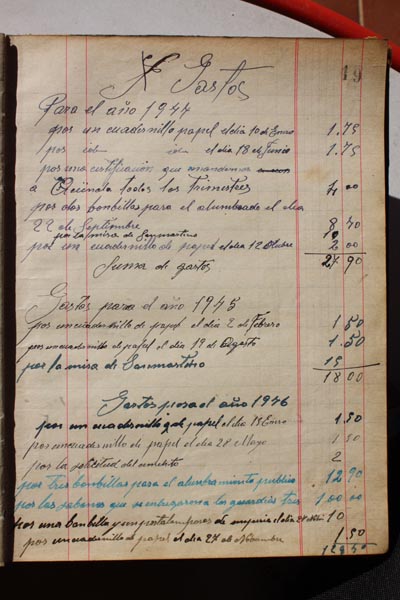 Gastos
19
Para el año 1944
por un cuadernillo papel el dia 10 de Enero 1.75
por id id el dia 18 de Junio 1.75
por una certificación que mandemos
a Cuenca todos los trimestres 4 00
por dos bonbillas para el alumbrado el dia
22 de Septiembre 8 40
por la misa de Sanmartino 10
por un cuadernillo de papel el dia 12 Otubre 2 00
Suma de gastos 27 90
Gastos para el año 1945
por un cuadernillo de papel el dia 2 de Febrero 1 50
por un cuadernillo de papel el dia 19 de Agosto 1.50
por la misa de Sanmartino 15
18 00
Gastos para el año 1946
por un cuadernillo de papel el dia 11 Enero 1.50
por un cuadernillo de papel el dia 28 Mayo 1 50
por la solicitud del 2
por tres bonbillas para el alumbramiento publico 12 90
por las sabanas que se entregaron a los guardias 100 00
por una bonbilla y un portalamparas el dia 10
por un cuadernillo de papel el dia 27 de Noviembre 1.50